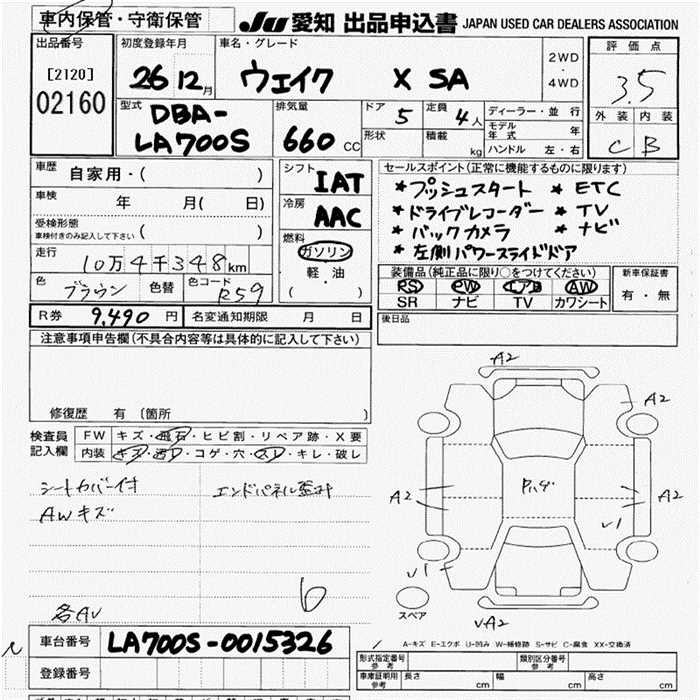 車内保管・守衛保管
JU 愛知 出品申込書 JAPAN USED CAR DEALERS ASSOCIATION
出品番号
[2120]
02160
初度登録年月
26 12月
車名・グレード
ウェイク X SA
2WD
・
4WD
評価点
3.5
外装 内装
C B
型式
DBA-
LA700S
排気量
660 CC
ドア 5
定員 4人
形状
積載 kg
ディーラー・並行
モデル年式 年
ハンドル 左・右
車歴
自家用・( )
車検 年 月( 日)
受検形態
車検付きのみ記入して下さい ( )
走行
10万4千348km
色 ブラウン 色替 色コード R59
シフト
IAT
冷房
AAC
燃料
ガソリン
軽・油
( )
セールスポイント(正常に機能するものに限ります)
*プッシュスタート *ETC
*ドライブレコーダー *TV
*バックカメラ *ナビ
*左側パワースライドドア
装備品(純正品に限り○をつけてください)
PS PW エアB AW
SR ナビ TV カワシート
新車保証書
有・無
R券 9,490円 名変通知期限 月 日
後日品
注意事項申告欄(不具合内容等は具体的に記入して下さい)
修復歴 有〔箇所 〕
検査員
記入欄
FW キズ・飛石・ヒビ割・リペア跡・X要
内装 キズ・汚レ・コゲ・穴・スレ・キレ・破レ
シートカバー付
AWキズ
エンドパネル歪み
6
各AU
A2
A2
A2
A2
U1
U1
UA2
スペア
A-キズ E-エクボ U-凹み W-補修跡 S-サビ C-腐食 XX-交換済
車台番号 LA700S-0015326
登録番号
形式指定番号
参考
類別区分番号
参考
車庫証明用
参考
長さ cm 幅 cm 高さ cm